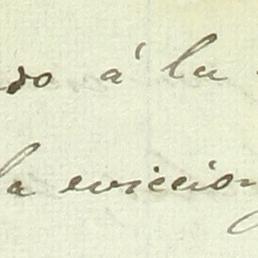 do á la
la eviccion